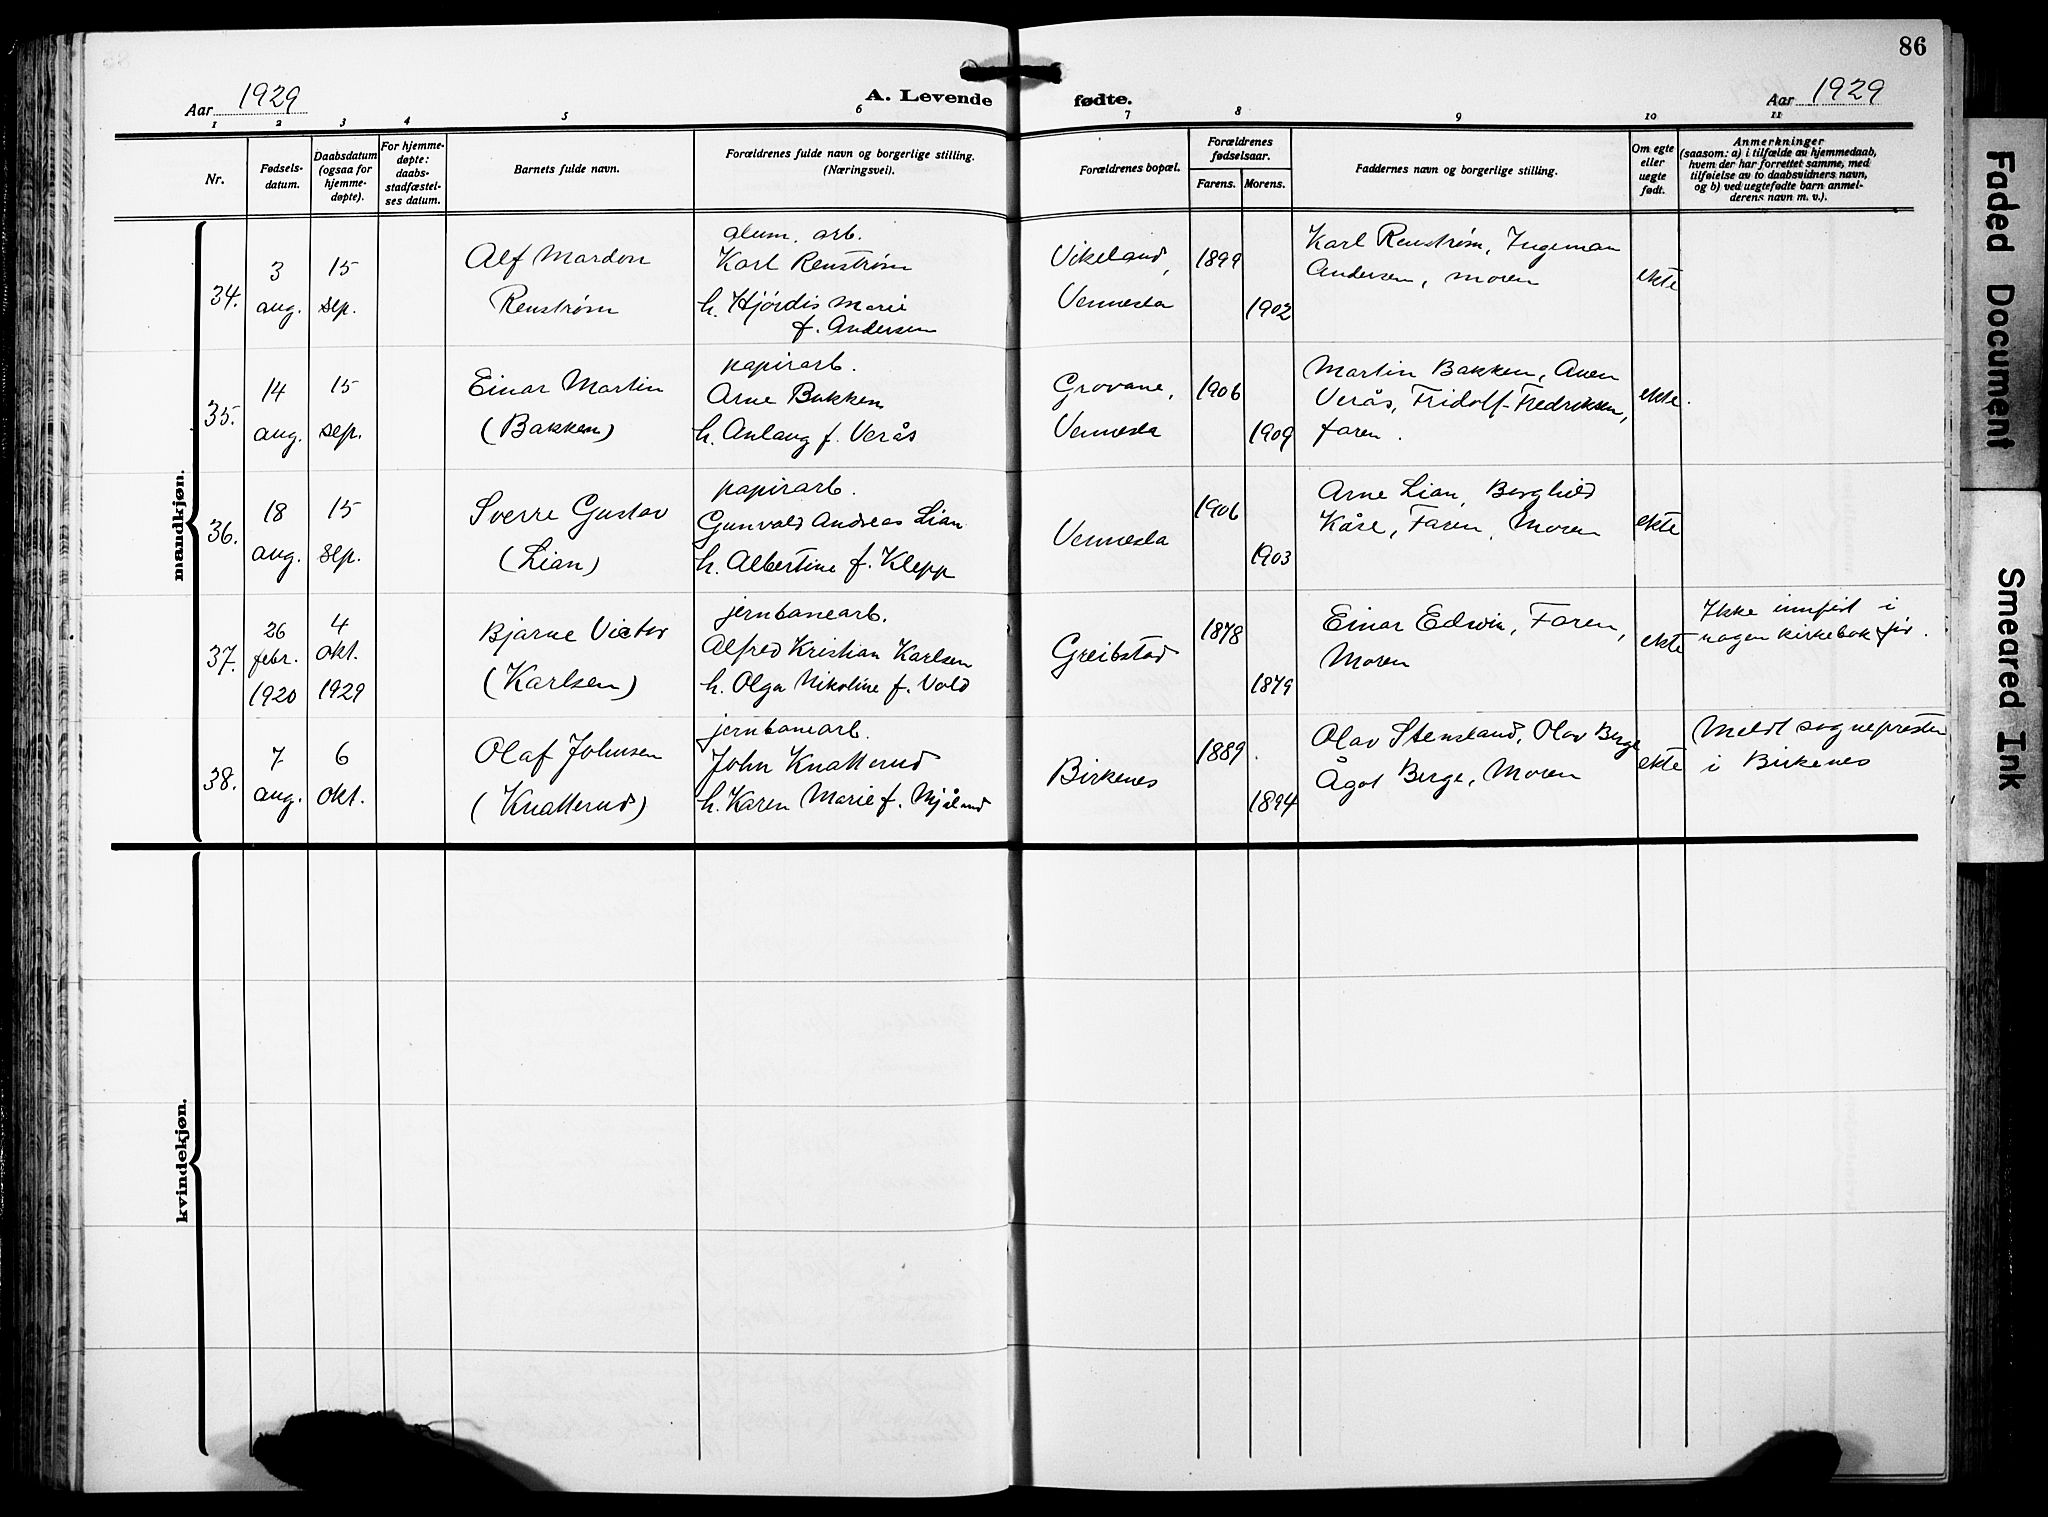 86
Aar 1929
A. Levende fødte.
Aar 1929
1 2 3 4 5 6 7 8 9 10 11
Nr.
Fødsels-
datum.
Daabsdatum
(ogsaa for
hjemme-
døpte).
For hjemme-
døpte:
daabs-
stadfæstel-
ses datum.
Barnets fulde navn.
Forældrenes fulde navn og borgerlige stilling.
(Næringsvei).
Forældrenes bopæl.
Forældrenes
fødselsaar.
Farens. Morens.
Faddernes navn og borgerlige stilling.
Om egte
eller
uegte
født.
Anmerkninger
(saasom: a) i tilfælde av hjemmedaab,
hvem der har forrettet samme, med
tilføielse av to daabsvidners navn,
og b) ved uegtefødte barn anmel-
derens navn m. v.).
mandkjøn.
34.
3
aug.
15
sep.
Alf Mardon
Renstrøm
alum. arb.
Karl Renstrøm
h. Hjørdis Marie
f. Andersen
Vikeland,
Vennesla
1899
1902
Karl Renstrøm, Ingeman
Andersen, moren
ekte
35.
14
aug.
15
sep.
Einar Martin
(Bakken)
papirarb.
Arne Bakken
h. Anlaug f. Verås
Grovane,
Vennesla
1906
1909
Martin Bakken, Anen
Verås, Fridolf Fredriksen,
faren.
ekte.
36.
18
aug.
15
sep.
Sverre Gustav
(Lian)
papirarb.
Gunvald Andreas Lian
h. Albertine f. Klepp
Vennesla
1906
1903
Arne Lian, Borghild
Kåse, Faren, Moren
ekte
37.
26
febr.
1920
4
okt.
1929
Bjarne Victor
(Karlsen)
jernbanearb.
Alfred Kristian Karlsen
h. Olga Nikoline f. Vold
Greibstad
1878
1879
Einar Edwin, Faren,
Moren
ekte
Ikke innført i
nogen kirkebok før.
38.
7
aug.
6
okt.
Olaf Johnsen
(Knatterud)
jernbanearb.
John Knatterud
h. Karen Marie f. Mjåland
Birkenes
1889
1894
Olav Stensland, Olav Berge
Ågot Berge, Moren
ekte
Meldt sognepresten
i Birkenes
kvindekjøn.
Faded Document
Smeared Ink